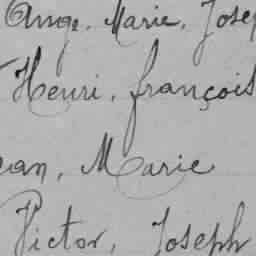 Ange. Marie. Josep
Henri. françois
ean, Marie
Victor, Joseph